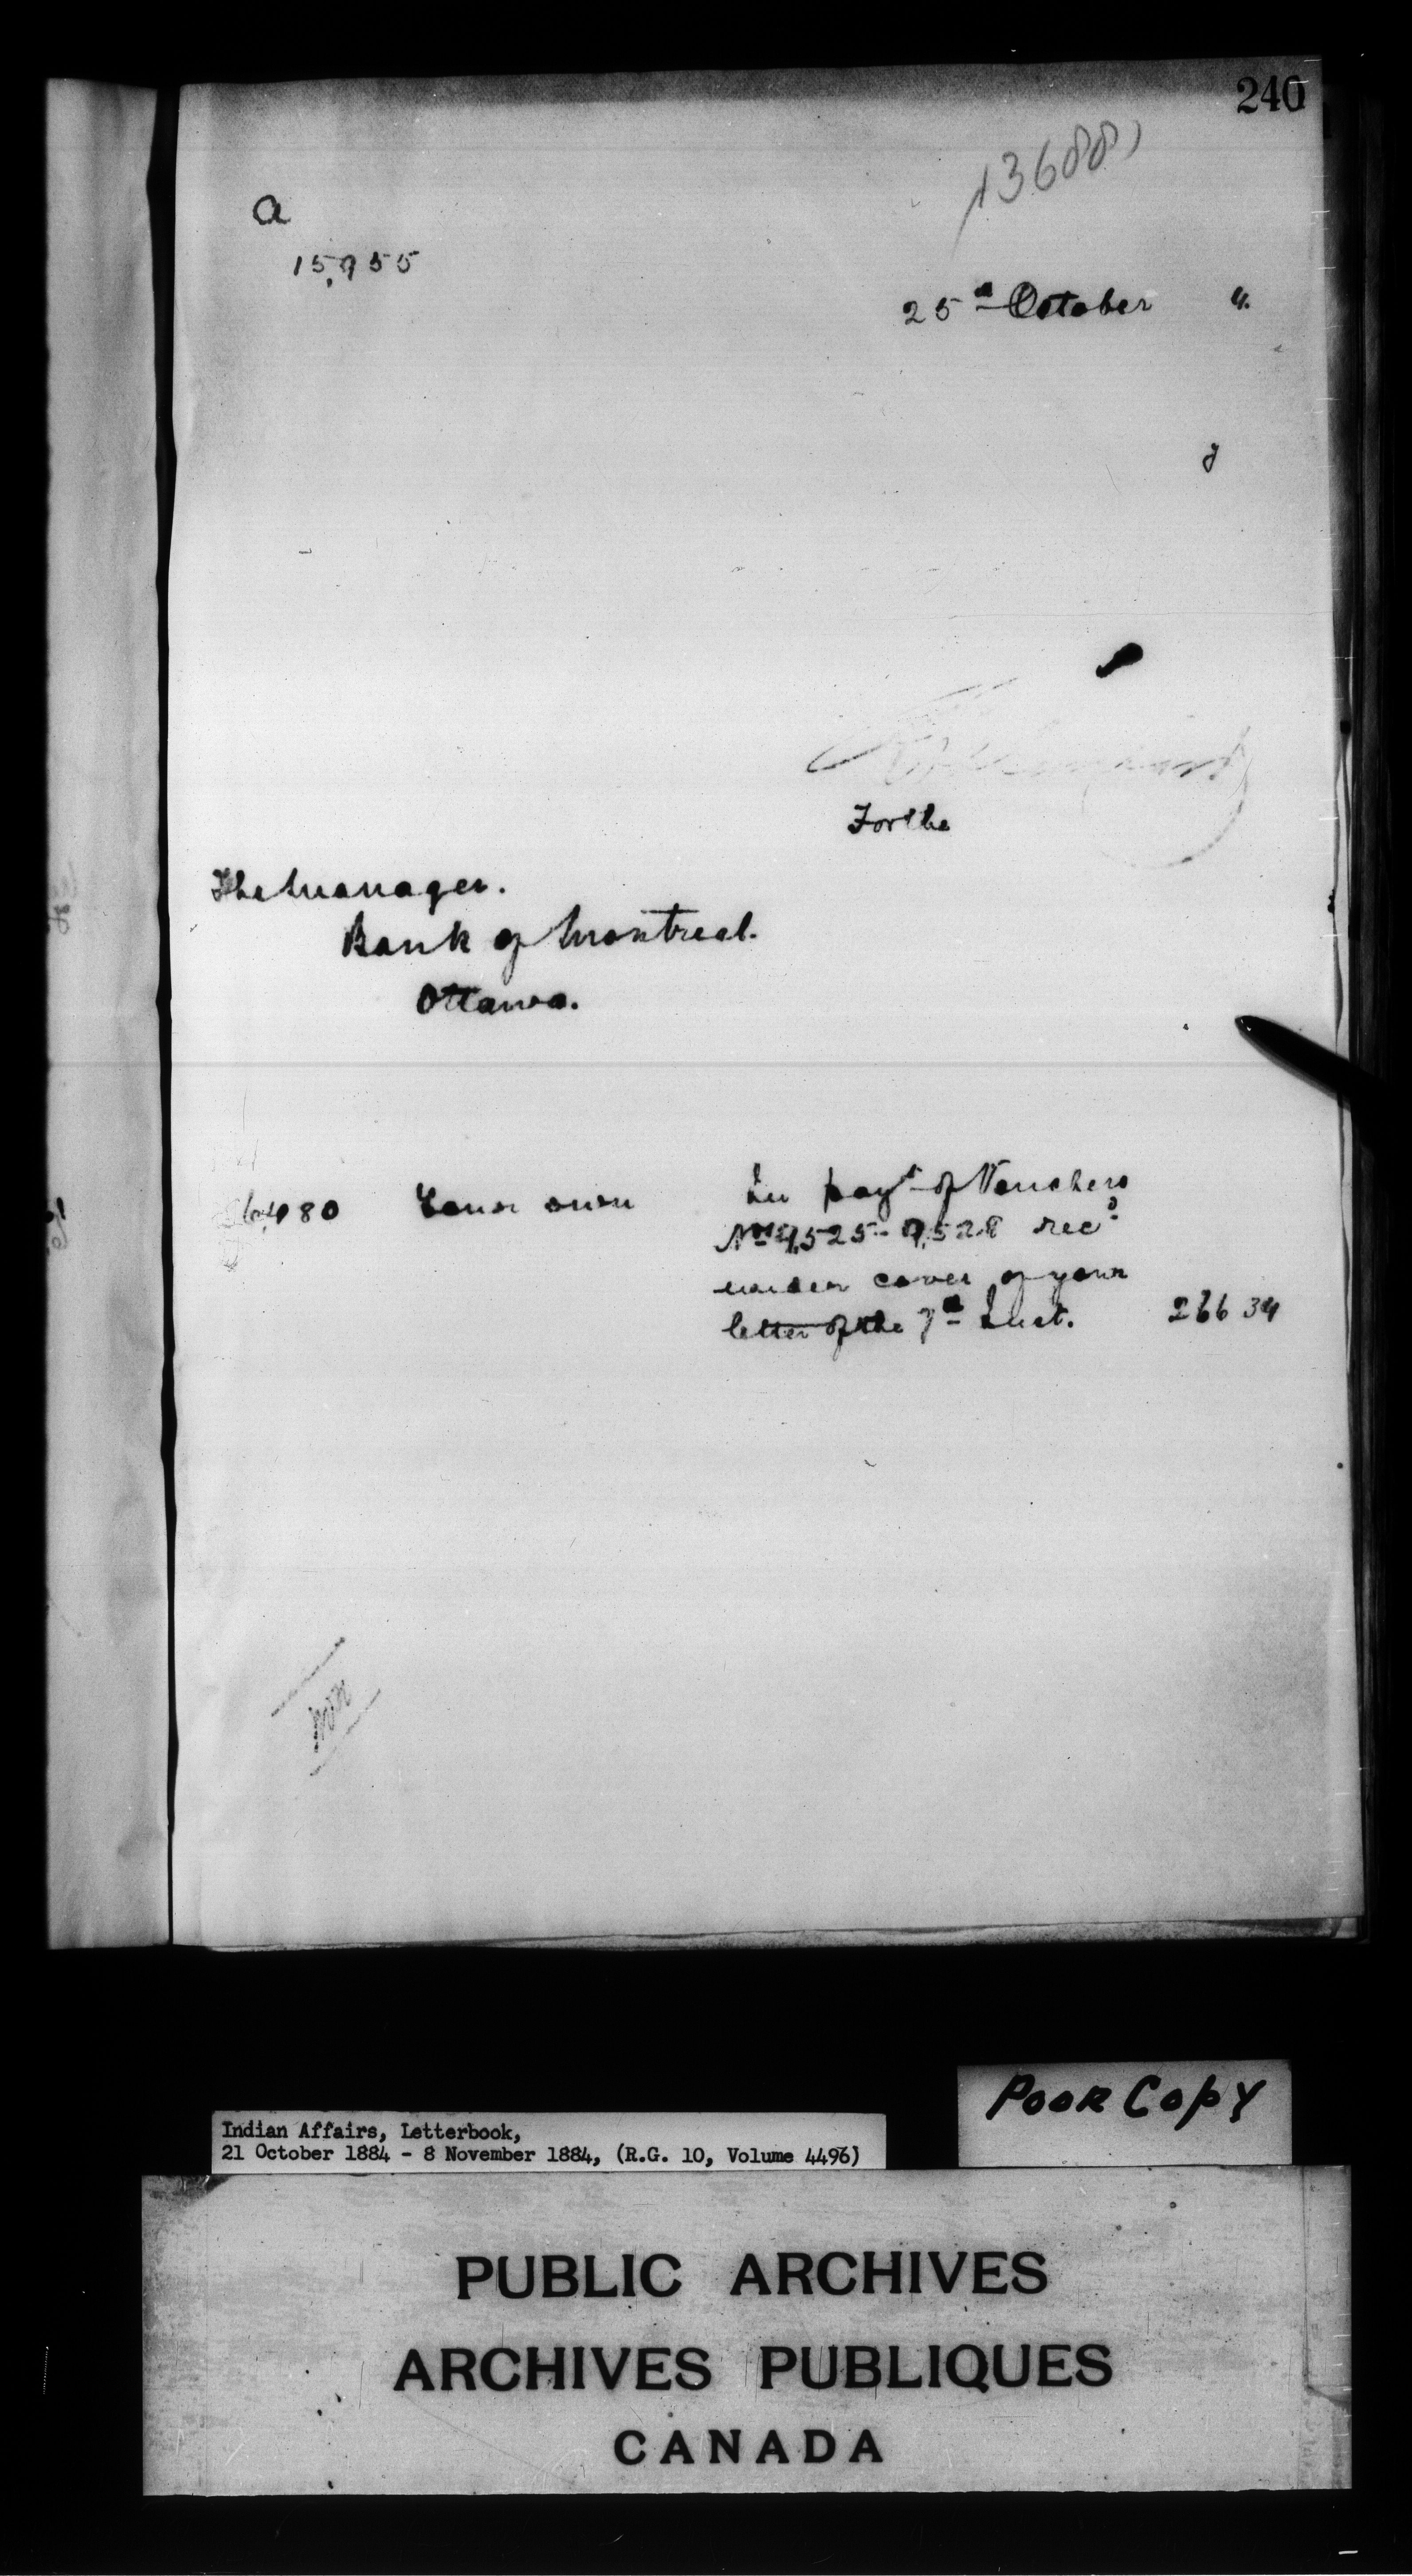 240
13688
a
15,955
25th October 4.
y
For the
The Manager.
Bank of Montreal.
Ottawa.
6,480 Your own In payt of Vouchers
Nos 9,525 - 9,528 recd
under cover of your
letter of the 7th Inst. 266 34
Poor Copy
Indian Affairs, Letterbook,
21 October 1884 - 8 November 1884, (R.G. 10, Volume 4496)
PUBLIC ARCHIVES
ARCHIVES PUBLIQUES
CANADA